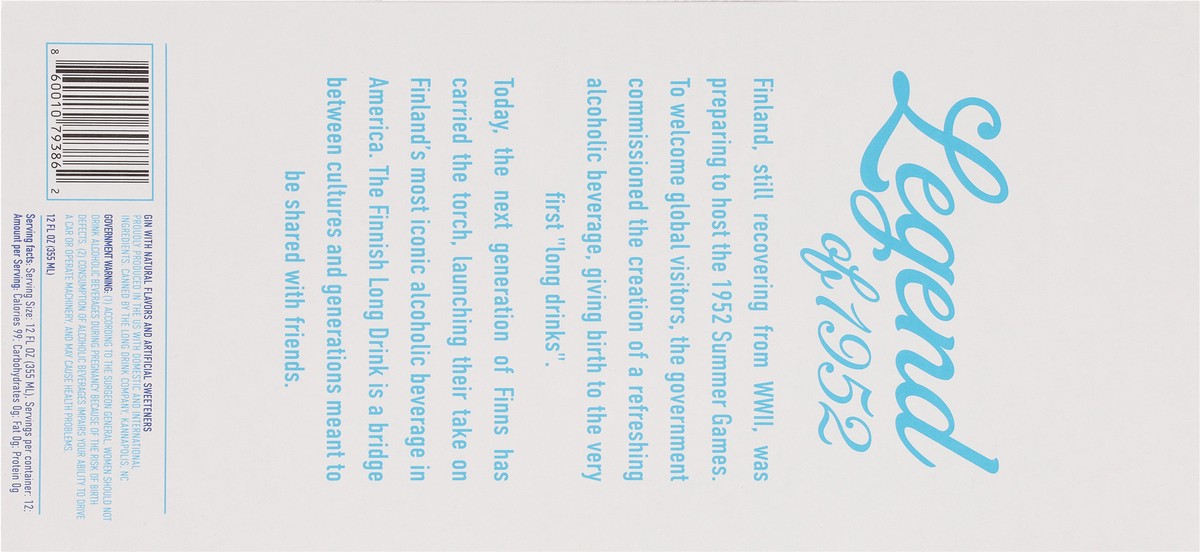 Legend
of 1952
Finland, still recovering from WWII, was
preparing to host the 1952 Summer Games.
To welcome global visitors, the government
commissioned the creation of a refreshing
alcoholic beverage, giving birth to the very
first "long drinks".
Today, the next generation of Finns has
carried the torch, launching their take on
Finland's most iconic alcoholic beverage in
America. The Finnish Long Drink is a bridge
between cultures and generations meant to
be shared with friends.
GIN WITH NATURAL FLAVORS AND ARTIFICIAL SWEETENERS
PROUDLY PRODUCED IN THE US WITH DOMESTIC AND INTERNATIONAL
INGREDIENTS. CANNED BY THE LONG DRINK COMPANY, KANNAPOLIS, NC
GOVERNMENT WARNING: (1) ACCORDING TO THE SURGEON GENERAL, WOMEN SHOULD NOT
DRINK ALCOHOLIC BEVERAGES DURING PREGNANCY BECAUSE OF THE RISK OF BIRTH
DEFECTS. (2) CONSUMPTION OF ALCOHOLIC BEVERAGES IMPAIRS YOUR ABILITY TO DRIVE
A CAR OR OPERATE MACHINERY, AND MAY CAUSE HEALTH PROBLEMS.
12 FL OZ (355 ML)
Serving facts: Serving Size: 12 FL OZ, (355 ML), Servings per container: 12:
Amount per Serving: Calories 99; Carbohydrates 0g; Fat 0g; Protein 0g
8 60010 79386 2